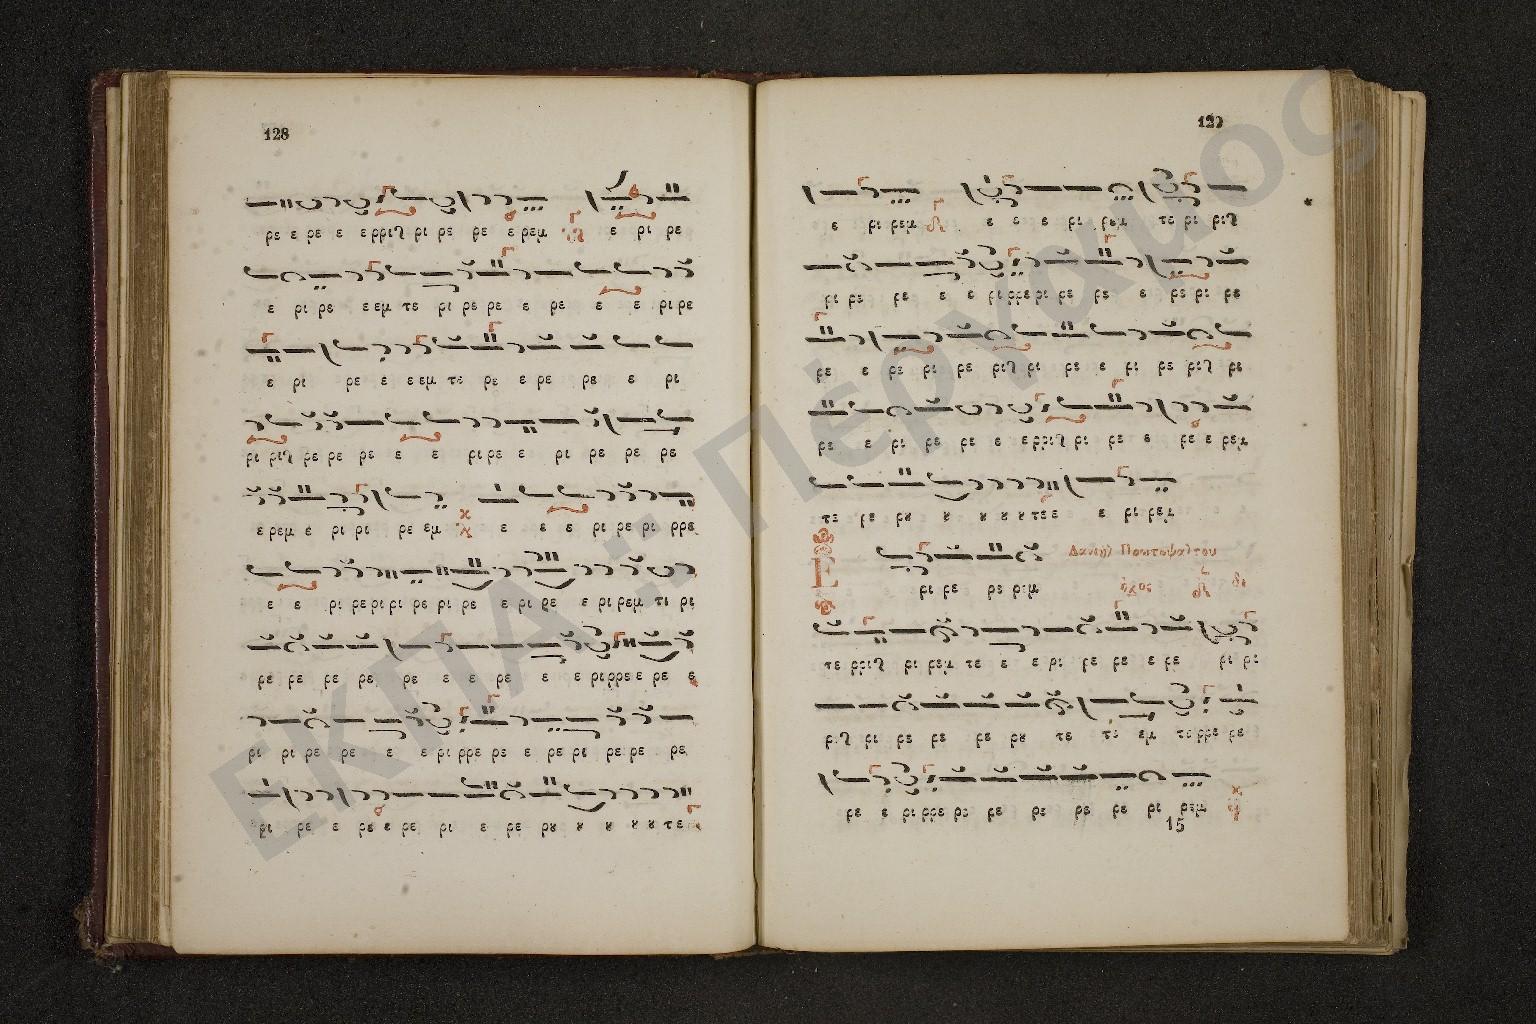 128
ρε ε ρε ε ερριϛ ρι ρε ρε ε ρεμ ε ρι ρε
ε ρι ρε ε εμ τε ρι ρε ρε ε ρε ε ε ρι ρε
ε ρι ρε ε ε εμ τε ρε ε ρε ρε ε ρι
ρι ριϛ ρε ρε ρε ε ε ρι ρε ε ρι ρε ρε ρε
ε ρεμ ε ρι ρι ρε εμ ε ε ε ρι ρε ρι ρρε
ε ε ρι ρε ρι ρι ρε ρι ρε ε ρι ρε ε ρι ρεμ τι ρι
ρε ρε ρε ρε ρε ε ε ρε ε ε ρι ρρε ε ρε ε
ρι ρι ρε ρε ε ε ρι ρρε ρε ε ρε ρι ρε ρε ρε
ρι ρε ε ρε ε ρε ρι ε ρε ρȣ ȣ ȣ ȣ ȣ τε
129
ε ρι ρεμ ε ε ε ρι ρȣμ τε ρι ριϛ
ρι ρε ρε ε ε ρι ρρε ρι ρε ρε ε ρε ρι ρε
ρε ε ρε ρι ρε ριϛ ρι ρε ε ρι ρε ριϛ ρι
ρε ε ρι ρε ρε ε ερριϛ ρι ρε ε ρε ε ρεμ
τε ρε ρȣ ȣ ȣ ȣ ȣ τε ε ε ρι ρεμ
Δανιὴλ Πρωτοψάλτου
Ε ρι ρε ρε ρεμ ἦχος δι
τε ρριϛ ρι ρεμ τε ε ε ρι ρε ρε ε ρε ρι ρι
ριϛ ρι ρε ρε ρε ρȣ τε τι εμ τε ρρε ρε
ρε ε ρι ρρε ρε ρε ρε ρε ρε ρι ρεμ
15
ΕΚΠΑ :: Πέργαμος